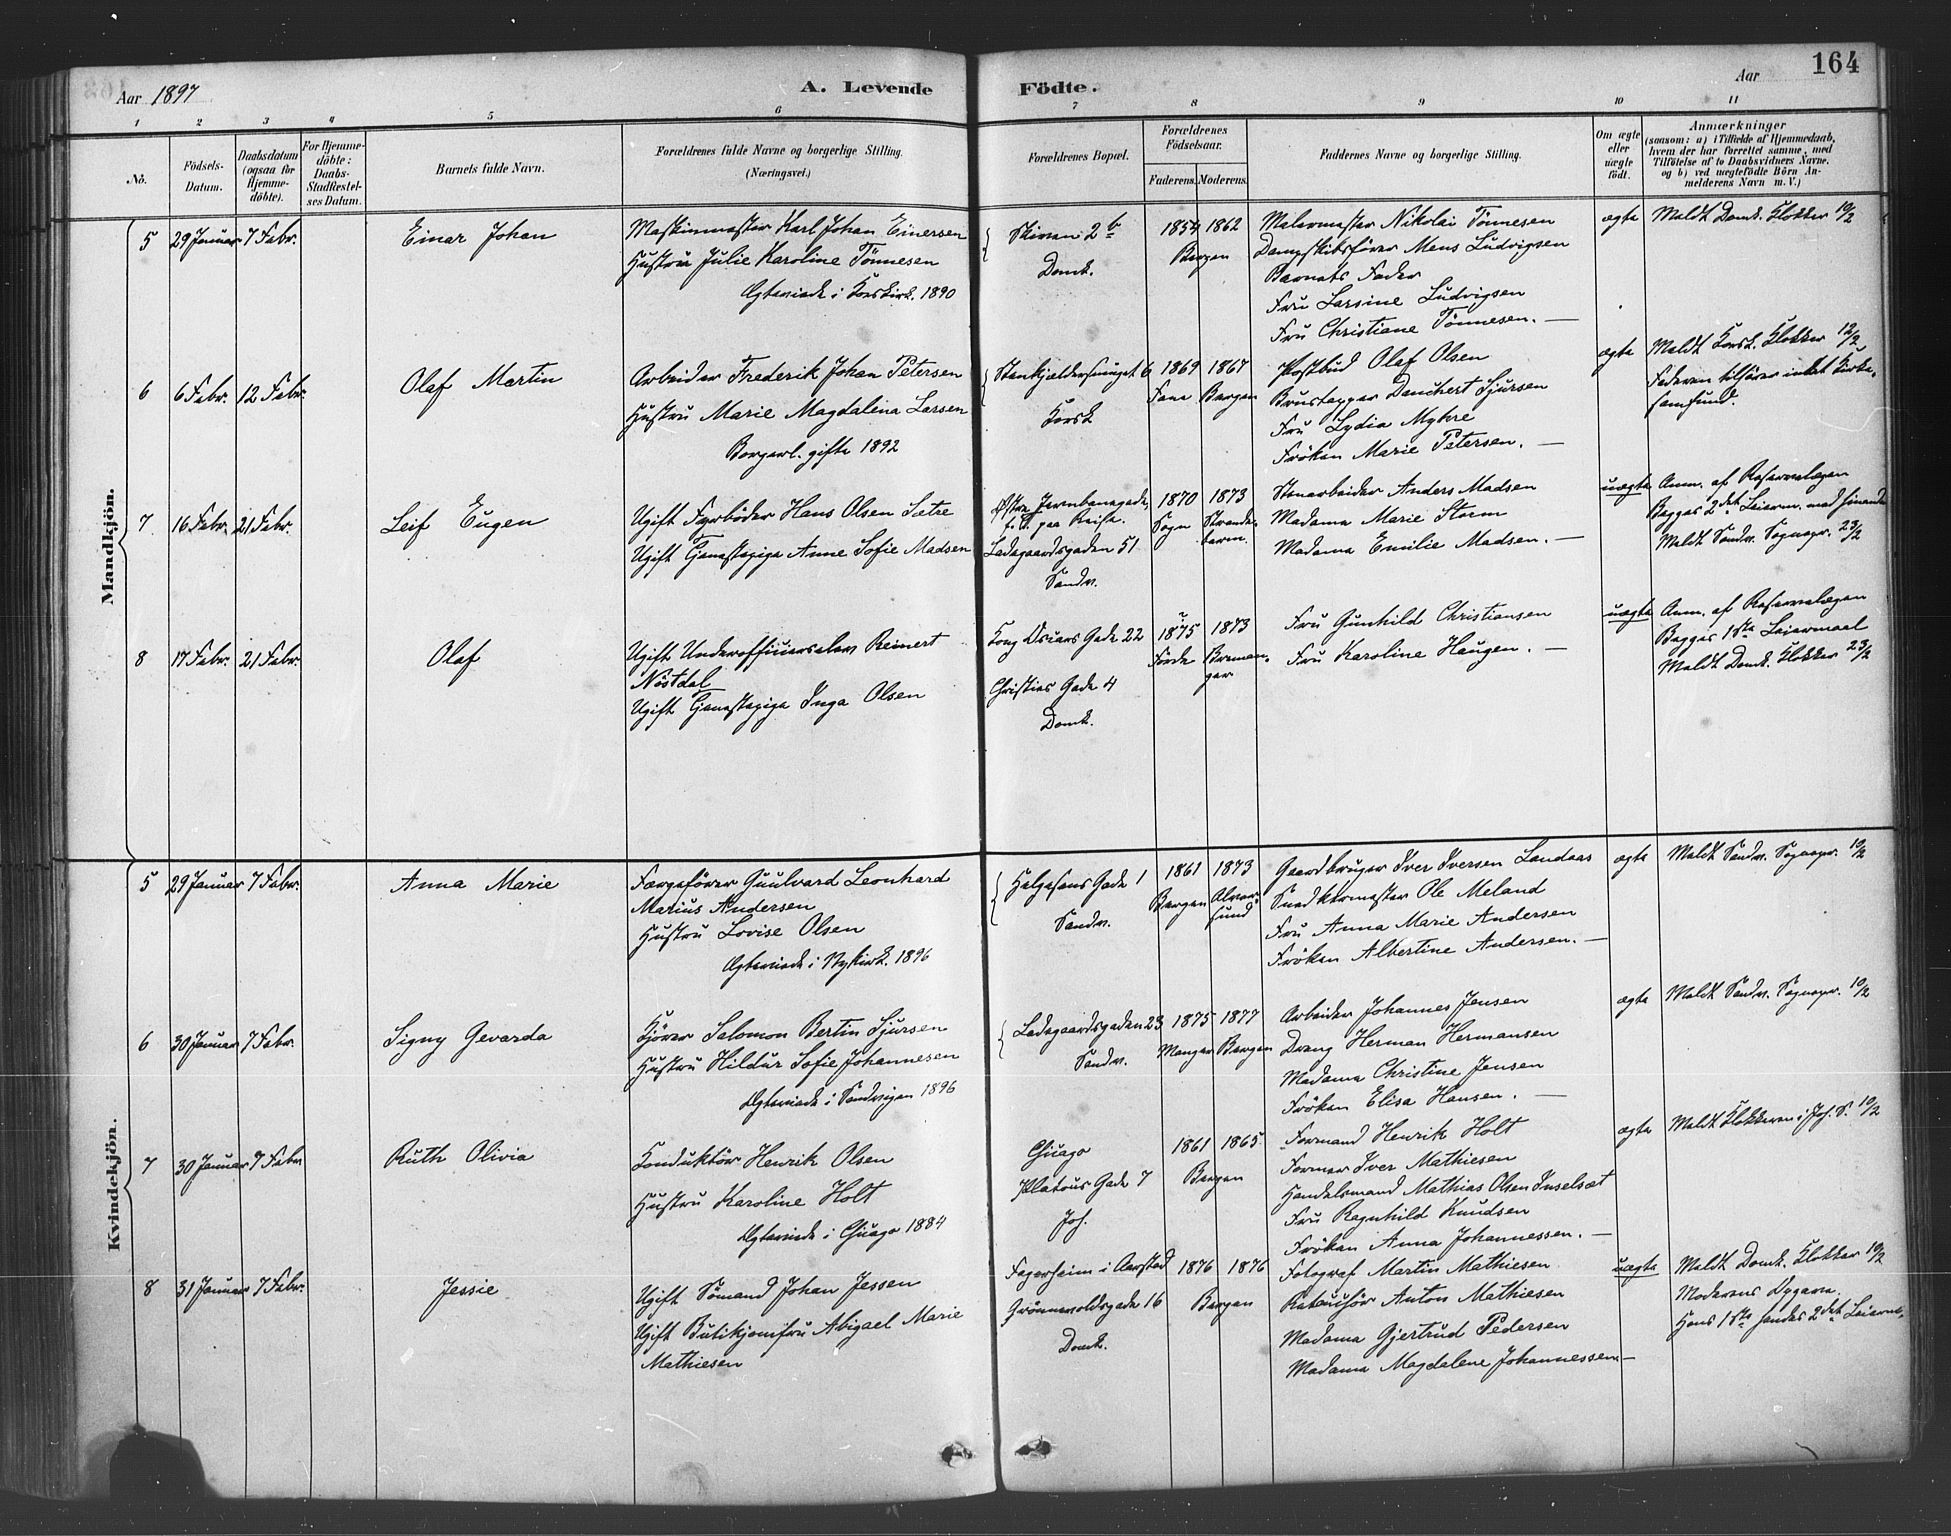 164
Aar 1897
A. Levende Födte.
Aar
1 2 3 4 5 6 7 8 9 10 11
No.
Födsels-Datum.
Daabsdatum (ogsaa for Hjemmedöbte).
For Hjemmedöbte: Daabs-Stadfæstelses Datum.
Barnets fulde Navn.
Forældrenes fulde Navne og borgerlige Stilling. (Næringsvei.)
Forældrenes Bopæl.
Forældrenes Födselsaar.
Faderens. Moderens.
Faddernes Navne og borgerlige Stilling.
Om ægte eller uægte födt.
Anmærkninger
(saasom: a) i Tilfælde af Hjemmedaab, hvem der har forrettet samme, med Tilföielse af to Daabsvidners Navne, og b) ved uægtefödte Börn Anmelderens Navn m. V.)
Mandkjön.
5 29 Januar 7 Febr.
Einar Johan
Maskinmester Karl Johan Einersen
Hustru Julie Karoline Tönnesen
Ægteviede i Korskirk. 1890
Skiven 2 b
Domk.
1854 1862
Bergen
Malermester Nikolai Tönnesen
Dampskibsförer Mons Ludvigsen
Barnets Fader
Fru Larsine Ludvigsen
Fru Christiane Tönnesen. —
ægte
Meldt Domk. Klokker 10/2
6 6 Febr. 12 Febr.
Olaf Martin
Arbeider Frederik Johan Petersen
Hustru Marie Magdalena Larsen
Borgerl. gifte 1892
Stenkjeldersmuget 6
Korsk
1869 1867
Fana Bergen
Postbud Olaf Olsen
Brustapper Danchert Sjursen
Fru Lydia Myhre
Fröken Marie Petersen. —
ægte
Meldt Korsk. Klokker 12/2
Faderen tilhörer intet Kirke-
samfund.
7 16 Febr. 21 Febr.
Leif Eugen
Ugift Fyrböder Hans Olsen Sætre
Ugift Tjenestepige Anne Sofie Madsen
Østre Jernbanegade,
f. T. paa Reise.
Ladegaardsgaden 51
Sandv.
1870 1873
Sogn Strande-
barm.
Stenarbeider Anders Madsen
Madame Marie Storm
Madame Emilie Madsen. —
uægte
Anm. af Reservelægen
Begges 2det Leierm. med hinanden
Meldt Sandv. Sognepr. 23/2
8 17 Febr. 21 Febr.
Olaf
Ugift Underofficierselev Reinert
Nöstdal
Ugift Tjenestepige Inga Olsen
Kong Oscars Gade 22
Christies Gade 4
Domk.
1875 1873
Förde Breman-
ger
Fru Gunhild Christiansen
Fru Karoline Haugen. —
uægte
Anm. af Reservelægen
Begges 1ste Leiermaal
Meldt Domk. Klokker 23/2
Kvindekjön.
5 29 Januar 7 Febr.
Anna Marie
Færgeförer Guulvard Leonhard
Marius Andersen
Hustru Lovise Olsen
Ægteviede i Nykirk. 1896
Helgesens Gade 1
Sandv.
1861 1873
Bergen Alver-
sund
Gaardbruger Iver Iversen Landaas
Snedkkermester Ole Meland
Fru Anna Marie Andersen
Fröken Albertine Andersen. —
ægte
Meldt Sandv. Sognepr. 10/2
6 30 Januar 7 Febr.
Signy Gevarda
Kjörer Salomon Bertin Sjursen
Hustru Hildur Sofie Johannesen
Ægteviede i Sandvigen 1896
Ladegaardsgaden 23
Sandv.
1875 1877
Manger Bergen
Arbeider Johannes Jensen
Dreng Herman Hermansen
Madame Christine Jensen
Fröken Elisa Hansen. —
ægte
Meldt Sandv. Sognepr. 10/2
7 30 Januar 7 Febr
Ruth Olivia
Konduktör Henrik Olsen
Hustru Karoline Holt
Ægteviede i Chicago 1884
Chicago
Platous Gade 7
Joh.
1861 1865
Bergen
Formand Henrik Holt
Former Iver Mathiesen
Handelsmand Mathias Olsen Inselset
Fru Ragnhild Knudsen
Fröken Anna Johannessen. —
ægte
Meldt Klokkeren i Joh. S. 10/2
8 31 Januar 7 Febr.
Jessie
Ugift Sömand Johan Jessen
Ugift Butikjomfru Abigael Marie
Mathiesen
Fagerheim i Aarstad
Grönnevoldsgade 16
Domk.
1876 1876
Bergen
Fotograf Martin Mathiesen
Retouchör Anton Mathiesen
Madame Gjertrud Pedersen
Madame Magdalene Johannessen —
uægte
Meldt Domk. Klokker 10/2
Moderens
Hans 1ste hendes 2det Leierm.